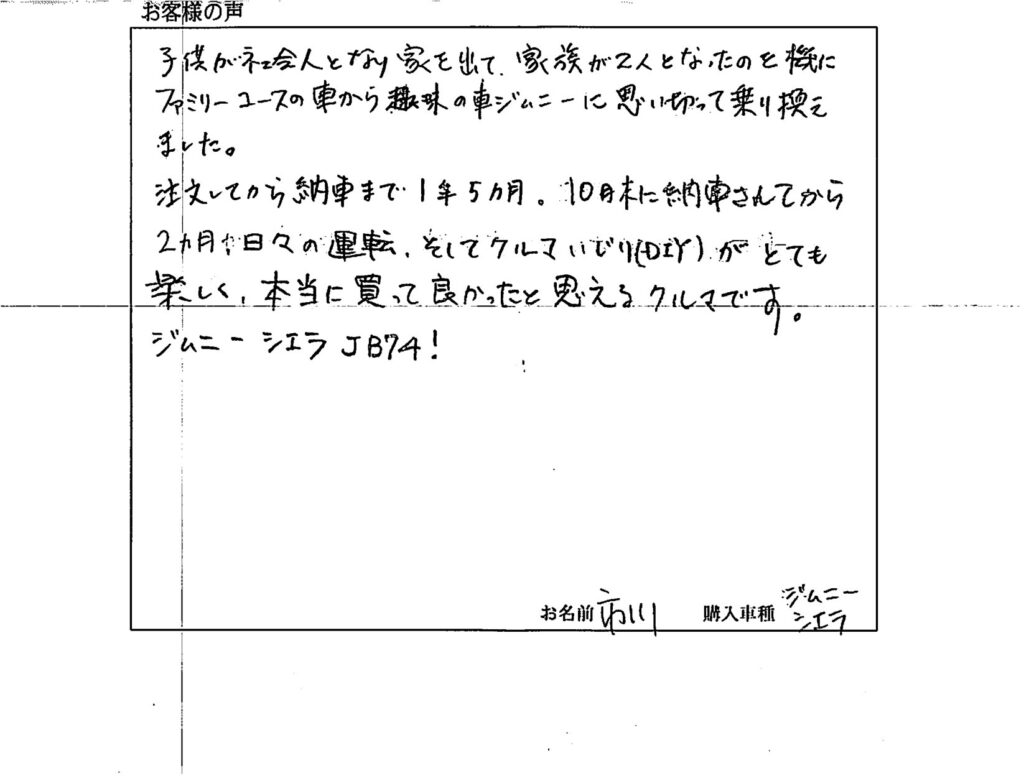 お客様の声
子供が社会人となり家を出て、家族が2人となったのを機に
ファミリーユースの車から趣味の車ジムニーに思い切って乗り換え
ました。
注文してから納車まで1年5カ月。10月末に納車されてから
2カ月、日々の運転、そしてクルマいじり(DIY)がとても
楽しく、本当に買って良かったと思えるクルマです。
ジムニーシエラJB74!
お名前 市川 購入車種 ジムニー
シエラ